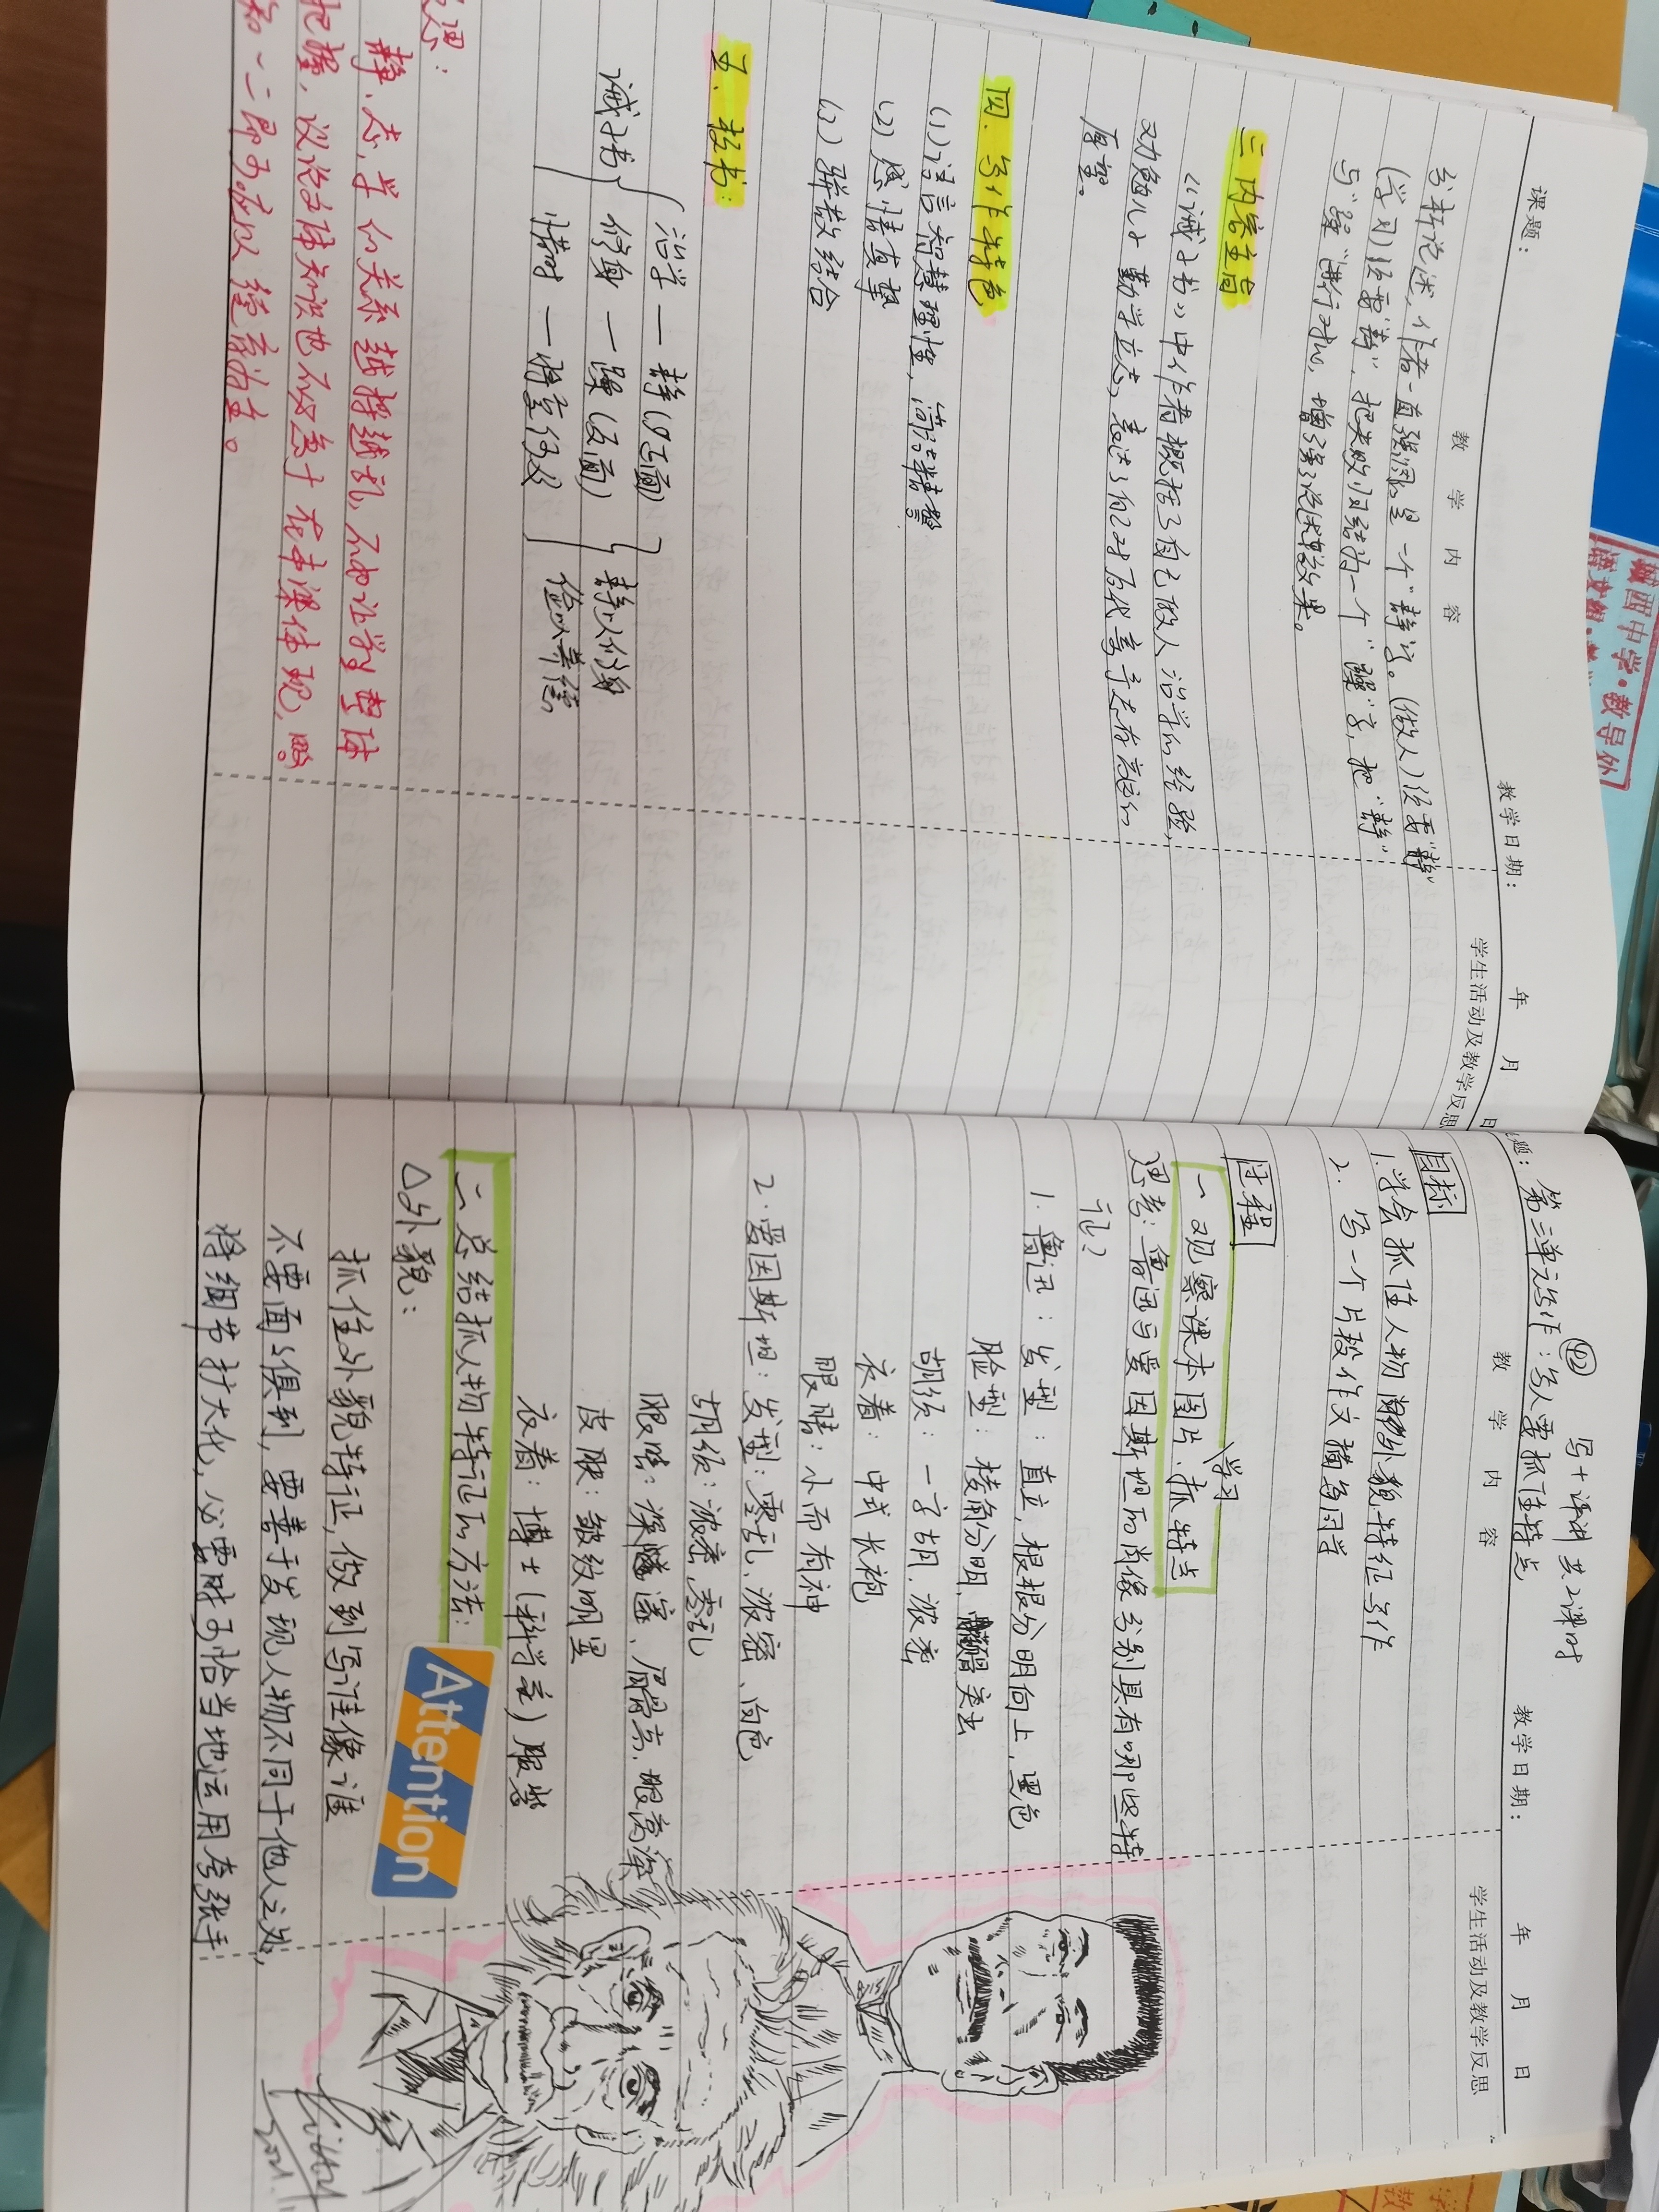 课题：
教学日期： 年 月 日
教 学 内 容
学生活动及教学反思
分析论述，作者一直强调是一个"静"字。(做人)须要"静"
(学习)须要"静"，把失败归结为一个"躁"字，把"静"
与"躁"进行对比，增强论述效果。
三 内容主旨
《诫子书》中作者概括了自己做人治学的经验，
劝勉儿子勤学立志，表达了他对后代寄予
厚望。
四、写作特色
(1)语言智慧理性，简洁精警
(2)感情真挚
(3)骈散结合
五、板书：
诫子书
治学 — 静(正面)
修身 — 躁(反面)
惜时 —
静以修身
俭以养德
思：
静、志、学的关系越搅越乱，不如让学生整体
把握，议论文体知识也不必急于在本课体现，
42
写+评讲 共2课时
题：第三单元写作：写人要抓住特点
教学日期： 年 月 日
教 学 内 容
学生活动及教学反思
目标
1.学会抓住人物外貌特征写作
2. 写一个片段作文描写同学
过程
学习
一 观察课本图片，抓特点
思考：鲁迅与爱因斯坦的肖像分别具有哪些特
点？
1. 鲁迅：发型：直立，根根分明向上，黑色
脸型：棱角分明，
胡须：一字胡，浓密
衣着：中式长袍
眼睛：小而有神
2.爱因斯坦：发型：零乱、浓密、白色
胡须：浓密，零乱
眼睛：深邃、眉骨高，眼窝深
皮肤：皱纹明显
衣着：博士(科学主)服装
二 总结抓人物特征的方法：
Attention
△外貌：
抓住外貌特征，做到写谁像谁
不要面面俱到，要善于发现人物不同于他人之处，
将细节扩大化，必要时可恰当地运用夸张手
西中学·教导处